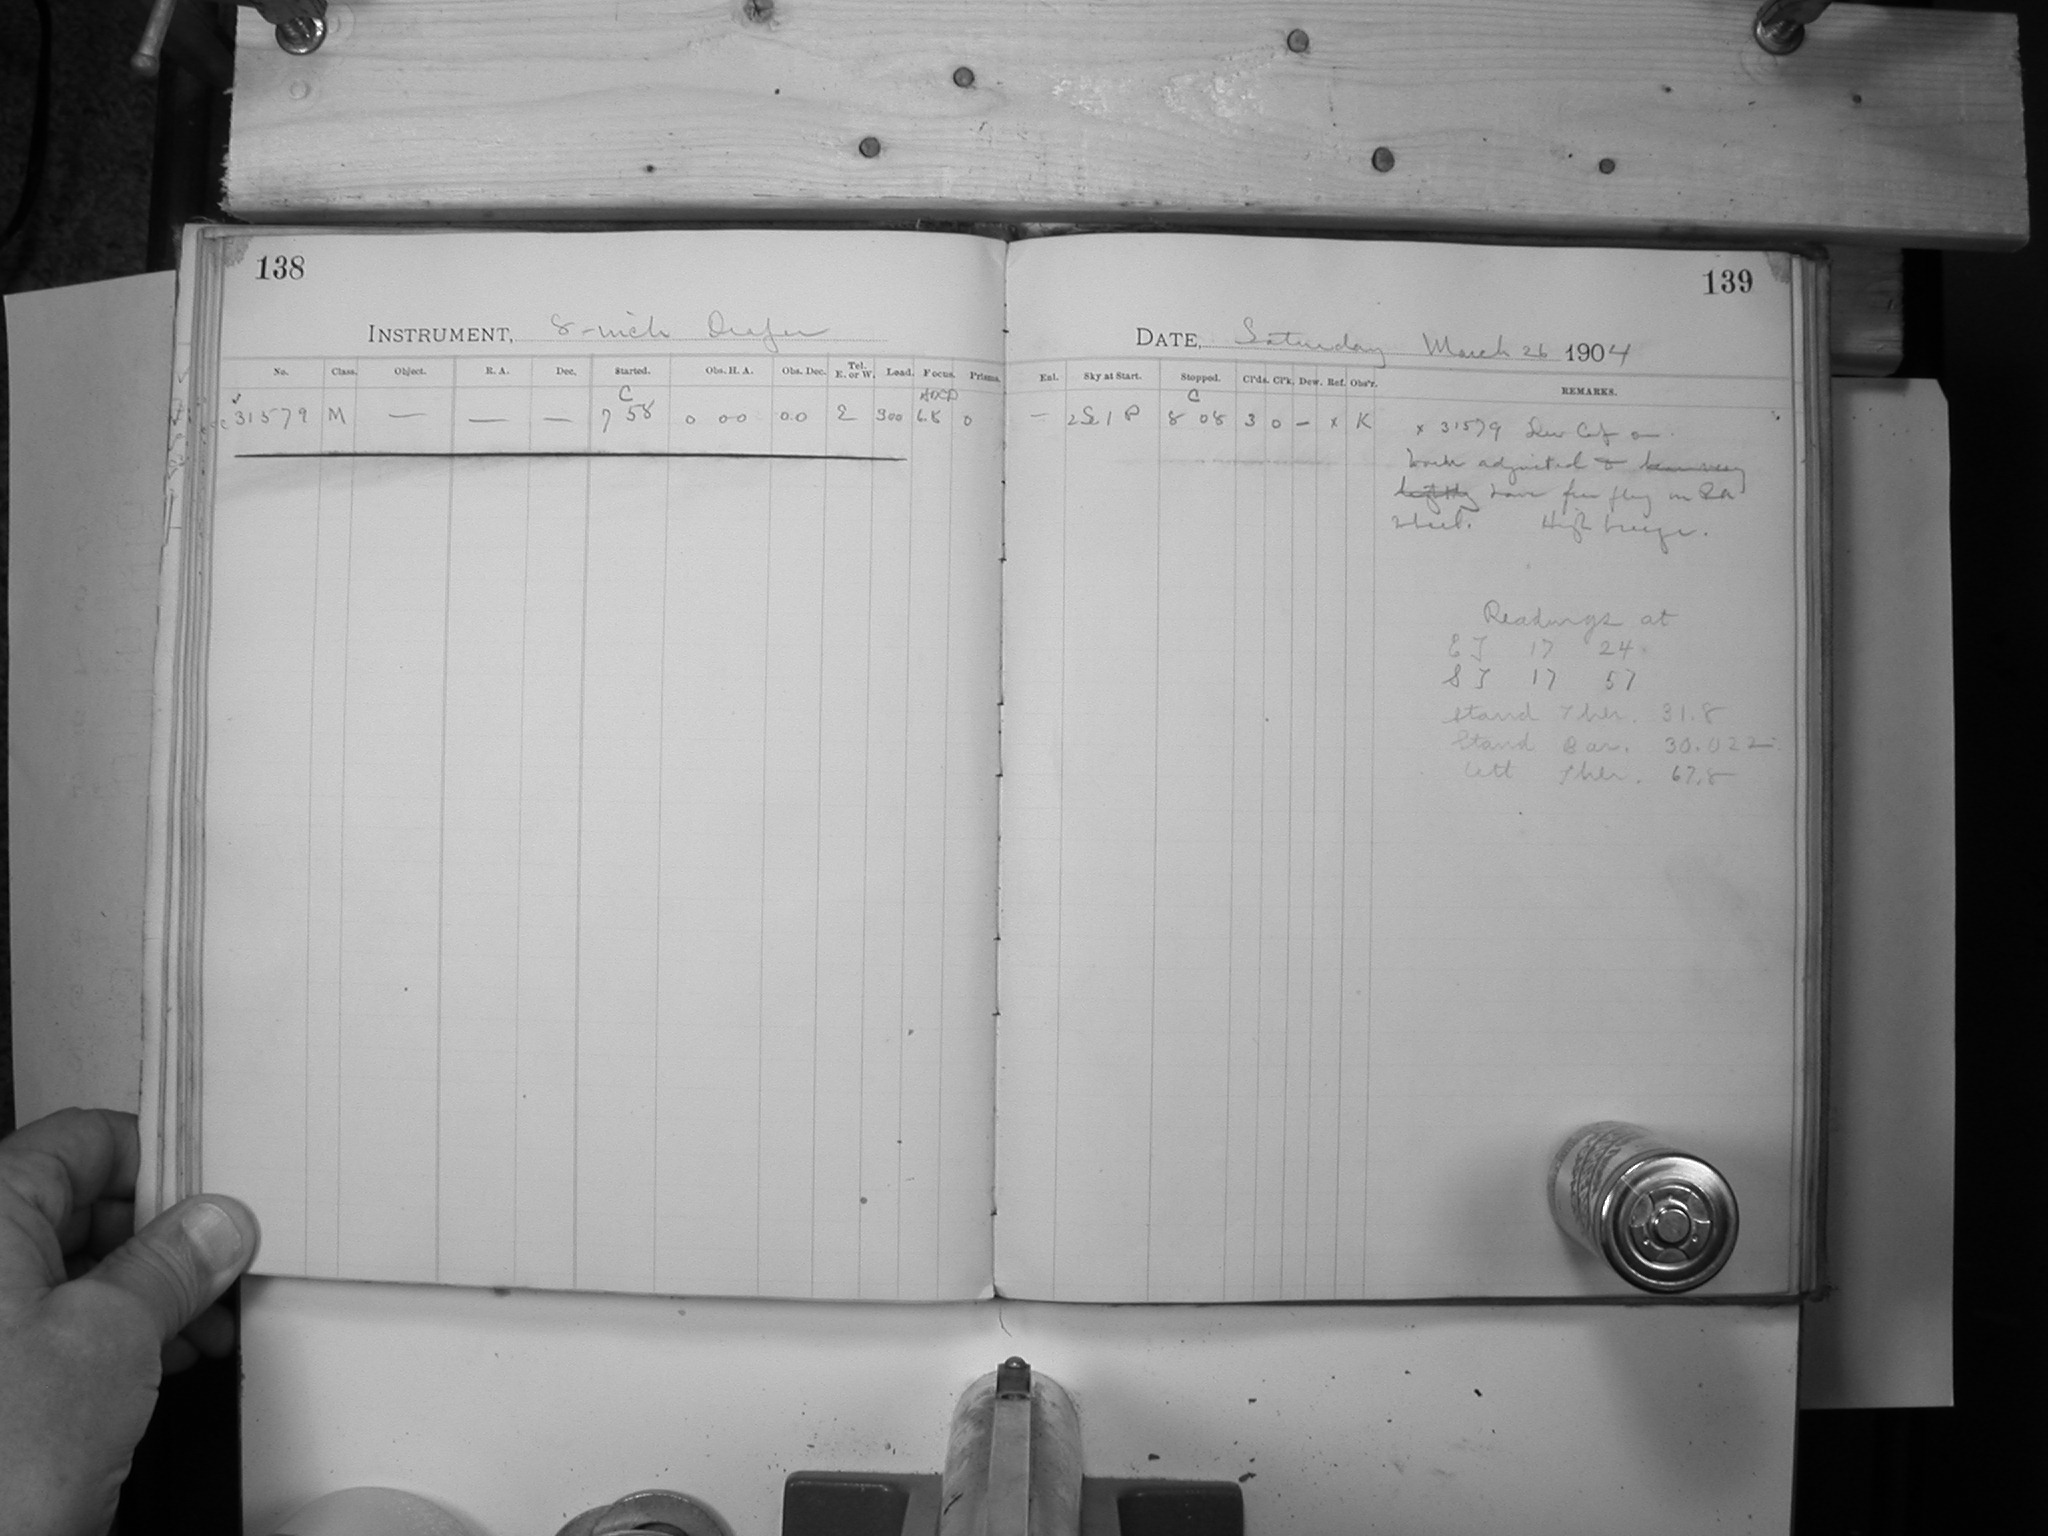 138
INSTRUMENT, 8-inch Draper
No. Class. Object. R. A. Dec. Started. Obs. H. A. Obs. Dec. Tel. E. or W. Load. Focus. Prisms.
C
31579 M — — — 7 58 0 00 0.0 E 300 6.8 0
139
DATE, Saturday March 26 1904
Enl. Sky at Start. Stopped. Cl'ds. Cl'k. Dew. Ref. Obs'r. REMARKS.
C
— 8 08 3 0 – x K
x 31579 Dew Cap on.
adjusted
have free play in RA
High breeze.
Readings at
E T 17 24
S T 17 57
Stand Ther. 31.8
Stand Bar. 30.022
Att Ther. 67.8